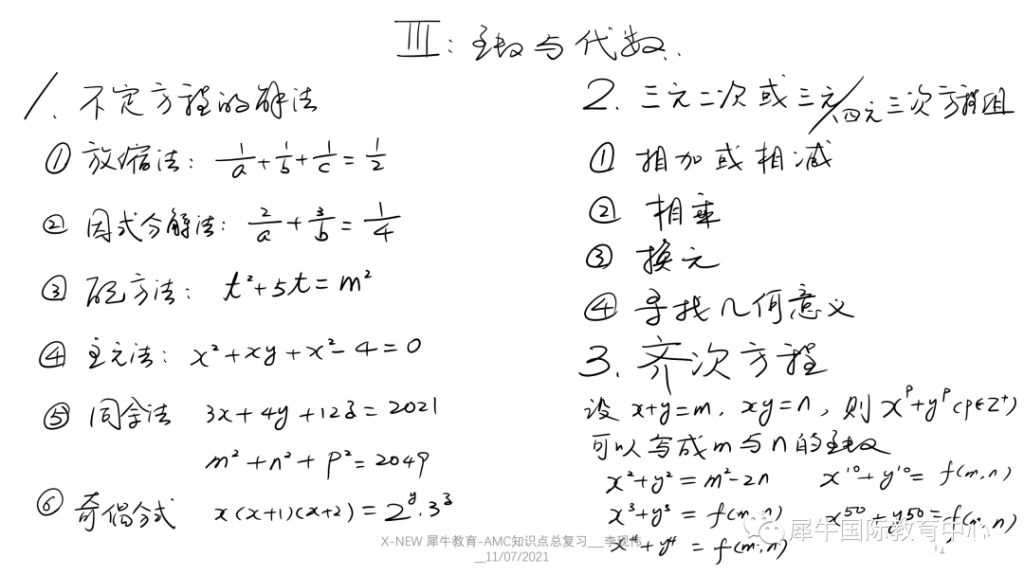 III: 与代数.
1. 不定方程的解法
① 放缩法: 1/a + 1/b + 1/c = 1/2
② 因式分解法: 2/a + 3/b = 1/4
③ 配方法: t²+5t=m²
④ 主元法: x²+xy+x²-4=0
⑤ 同余法 3x+4y+12z=2021
m²+n²+p²=2049
⑥ 奇偶分式 x(x+1)(x+2)=2^y·3^z
2. 三元二次或三元/四元三次方程组
① 相加或相减
② 相乘
③ 换元
④ 寻找几何意义
3. 齐次方程
设 x+y=m, xy=n, 则 x^p+y^p (p∈Z⁺)
可以写成m与n的
x²+y²=m²-2n x¹⁰+y¹⁰=f(m,n)
x³+y³=f(m,n) x⁵⁰+y⁵⁰=f(m,n)
x⁴+y⁴=f(m,n)
犀牛国际教育中心
X-NEW 犀牛教育-AMC知识点总复习__李现伟
__11/07/2021